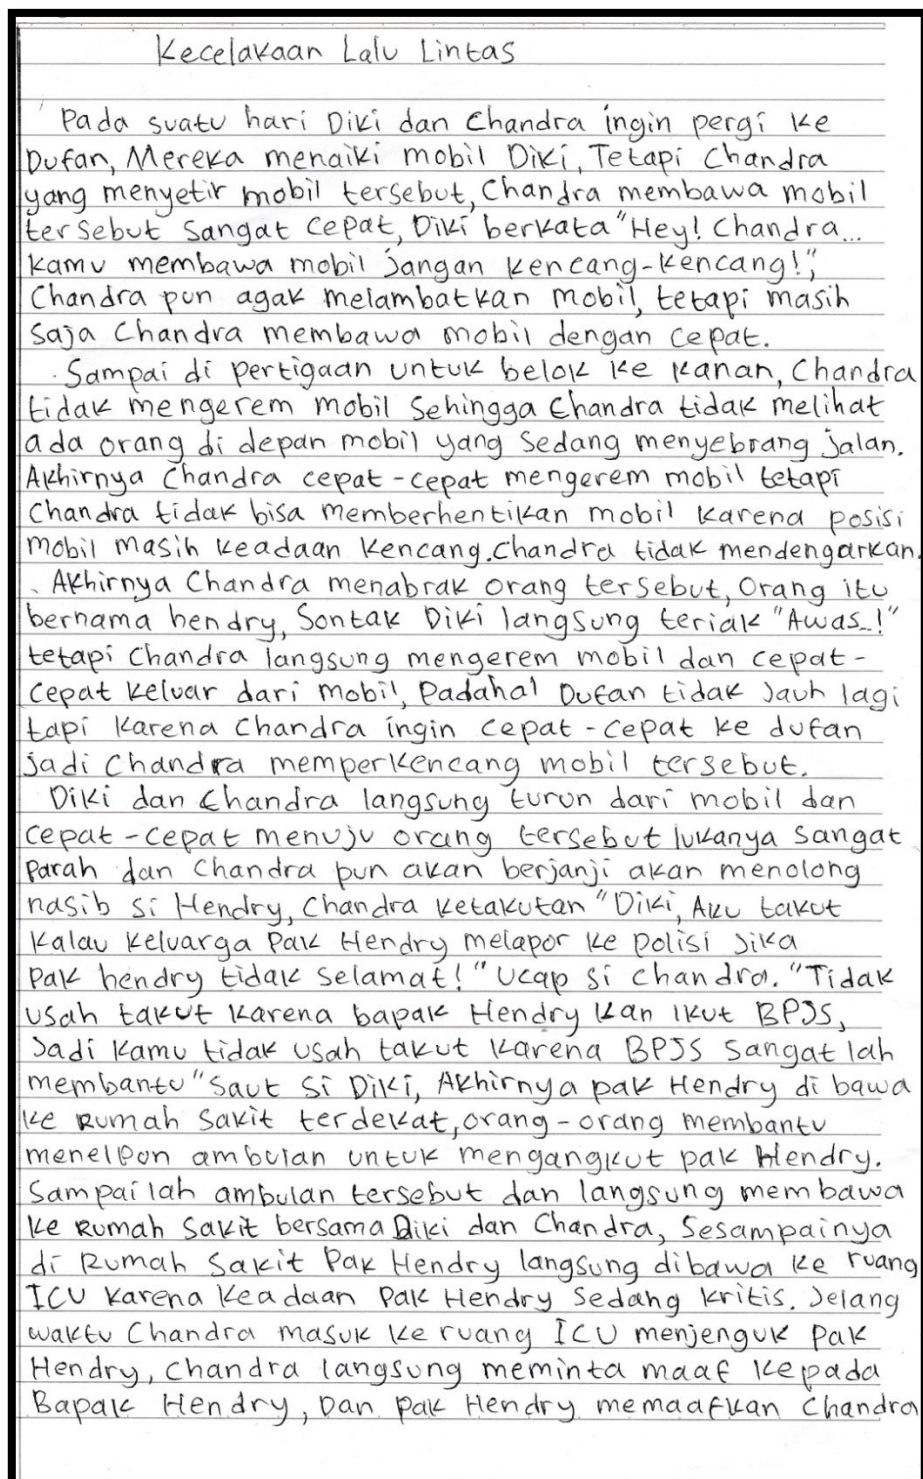 Kecelakaan Lalu Lintas
Pada suatu hari Diki dan Chandra ingin pergi ke
Dufan, Mereka menaiki mobil Diki, Tetapi Chandra
yang menyetir mobil tersebut, Chandra membawa mobil
tersebut Sangat Cepat, Diki berkata "Hey! Chandra...
Kamu membawa mobil jangan kencang-kencang!",
Chandra pun agak melambatkan mobil, tetapi masih
Saja Chandra membawa mobil dengan cepat.
Sampai di pertigaan untuk belok ke kanan, Chandra
tidak mengerem mobil Sehingga Chandra tidak melihat
ada orang di depan mobil yang Sedang menyebrang jalan.
Akhirnya Chandra cepat-cepat mengerem mobil tetapi
Chandra tidak bisa memberhentikan mobil karena posisi
mobil masih keadaan kencang. Chandra tidak mendengarkan.
Akhirnya Chandra menabrak orang tersebut, Orang itu
bernama hendry, Sontak Diki langsung teriak "Awas..!"
tetapi Chandra langsung mengerem mobil dan cepat-
cepat keluar dari mobil, Padahal Dufan tidak Jauh lagi
tapi karena Chandra ingin cepat-cepat ke dufan
jadi Chandra memperkencang mobil tersebut.
Diki dan Chandra langsung turun dari mobil dan
cepat-cepat menuju orang tersebut lukanya sangat
parah dan Chandra pun akan berjanji akan menolong
nasib si Hendry, Chandra ketakutan "Diki, Aku takut
kalau keluarga Pak Hendry melapor ke polisi Jika
Pak hendry tidak selamat!" Ucap si Chandra. "Tidak
usah takut karena bapak Hendry kan ikut BPJS,
Jadi kamu tidak usah takut karena BPJS Sangat lah
membantu" Saut Si Diki, Akhirnya pak Hendry di bawa
ke Rumah Sakit terdekat, orang-orang membantu
menelpon ambulan untuk mengangkut pak Hendry.
Sampai lah ambulan tersebut dan langsung membawa
ke Rumah Sakit bersama Diki dan Chandra, Sesampainya
di Rumah Sakit Pak Hendry langsung dibawa ke ruang
ICU karena keadaan Pak Hendry Sedang kritis. Jelang
waktu Chandra masuk ke ruang ICU menjenguk Pak
Hendry, Chandra langsung meminta maaf kepada
Bapak Hendry, Dan pak Hendry memaafkan Chandra